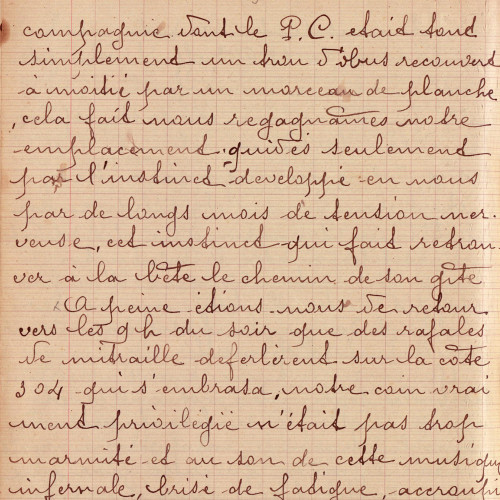 compagnie dont le P.C. etait tout
simplement un trou d'obus recouvert
à moitié par un morceau de planche
, cela fait nous regagnâmes notre
emplacement guidés seulement
par l'instinct developpé en nous
par de longs mois de tension ner-
veuse, cet instinct qui fait retrou-
ver à la bête le chemin de son gîte
A peine étions-nous de retour
vers les 9 h du soir que des rafales
de mitraille deferlèrent sur la côte
304 qui s'embrasa, notre coin vrai
ment privilégié n'était pas trop
marmité et au son de cette musique
infernale, brisé de fatigue, accroupi